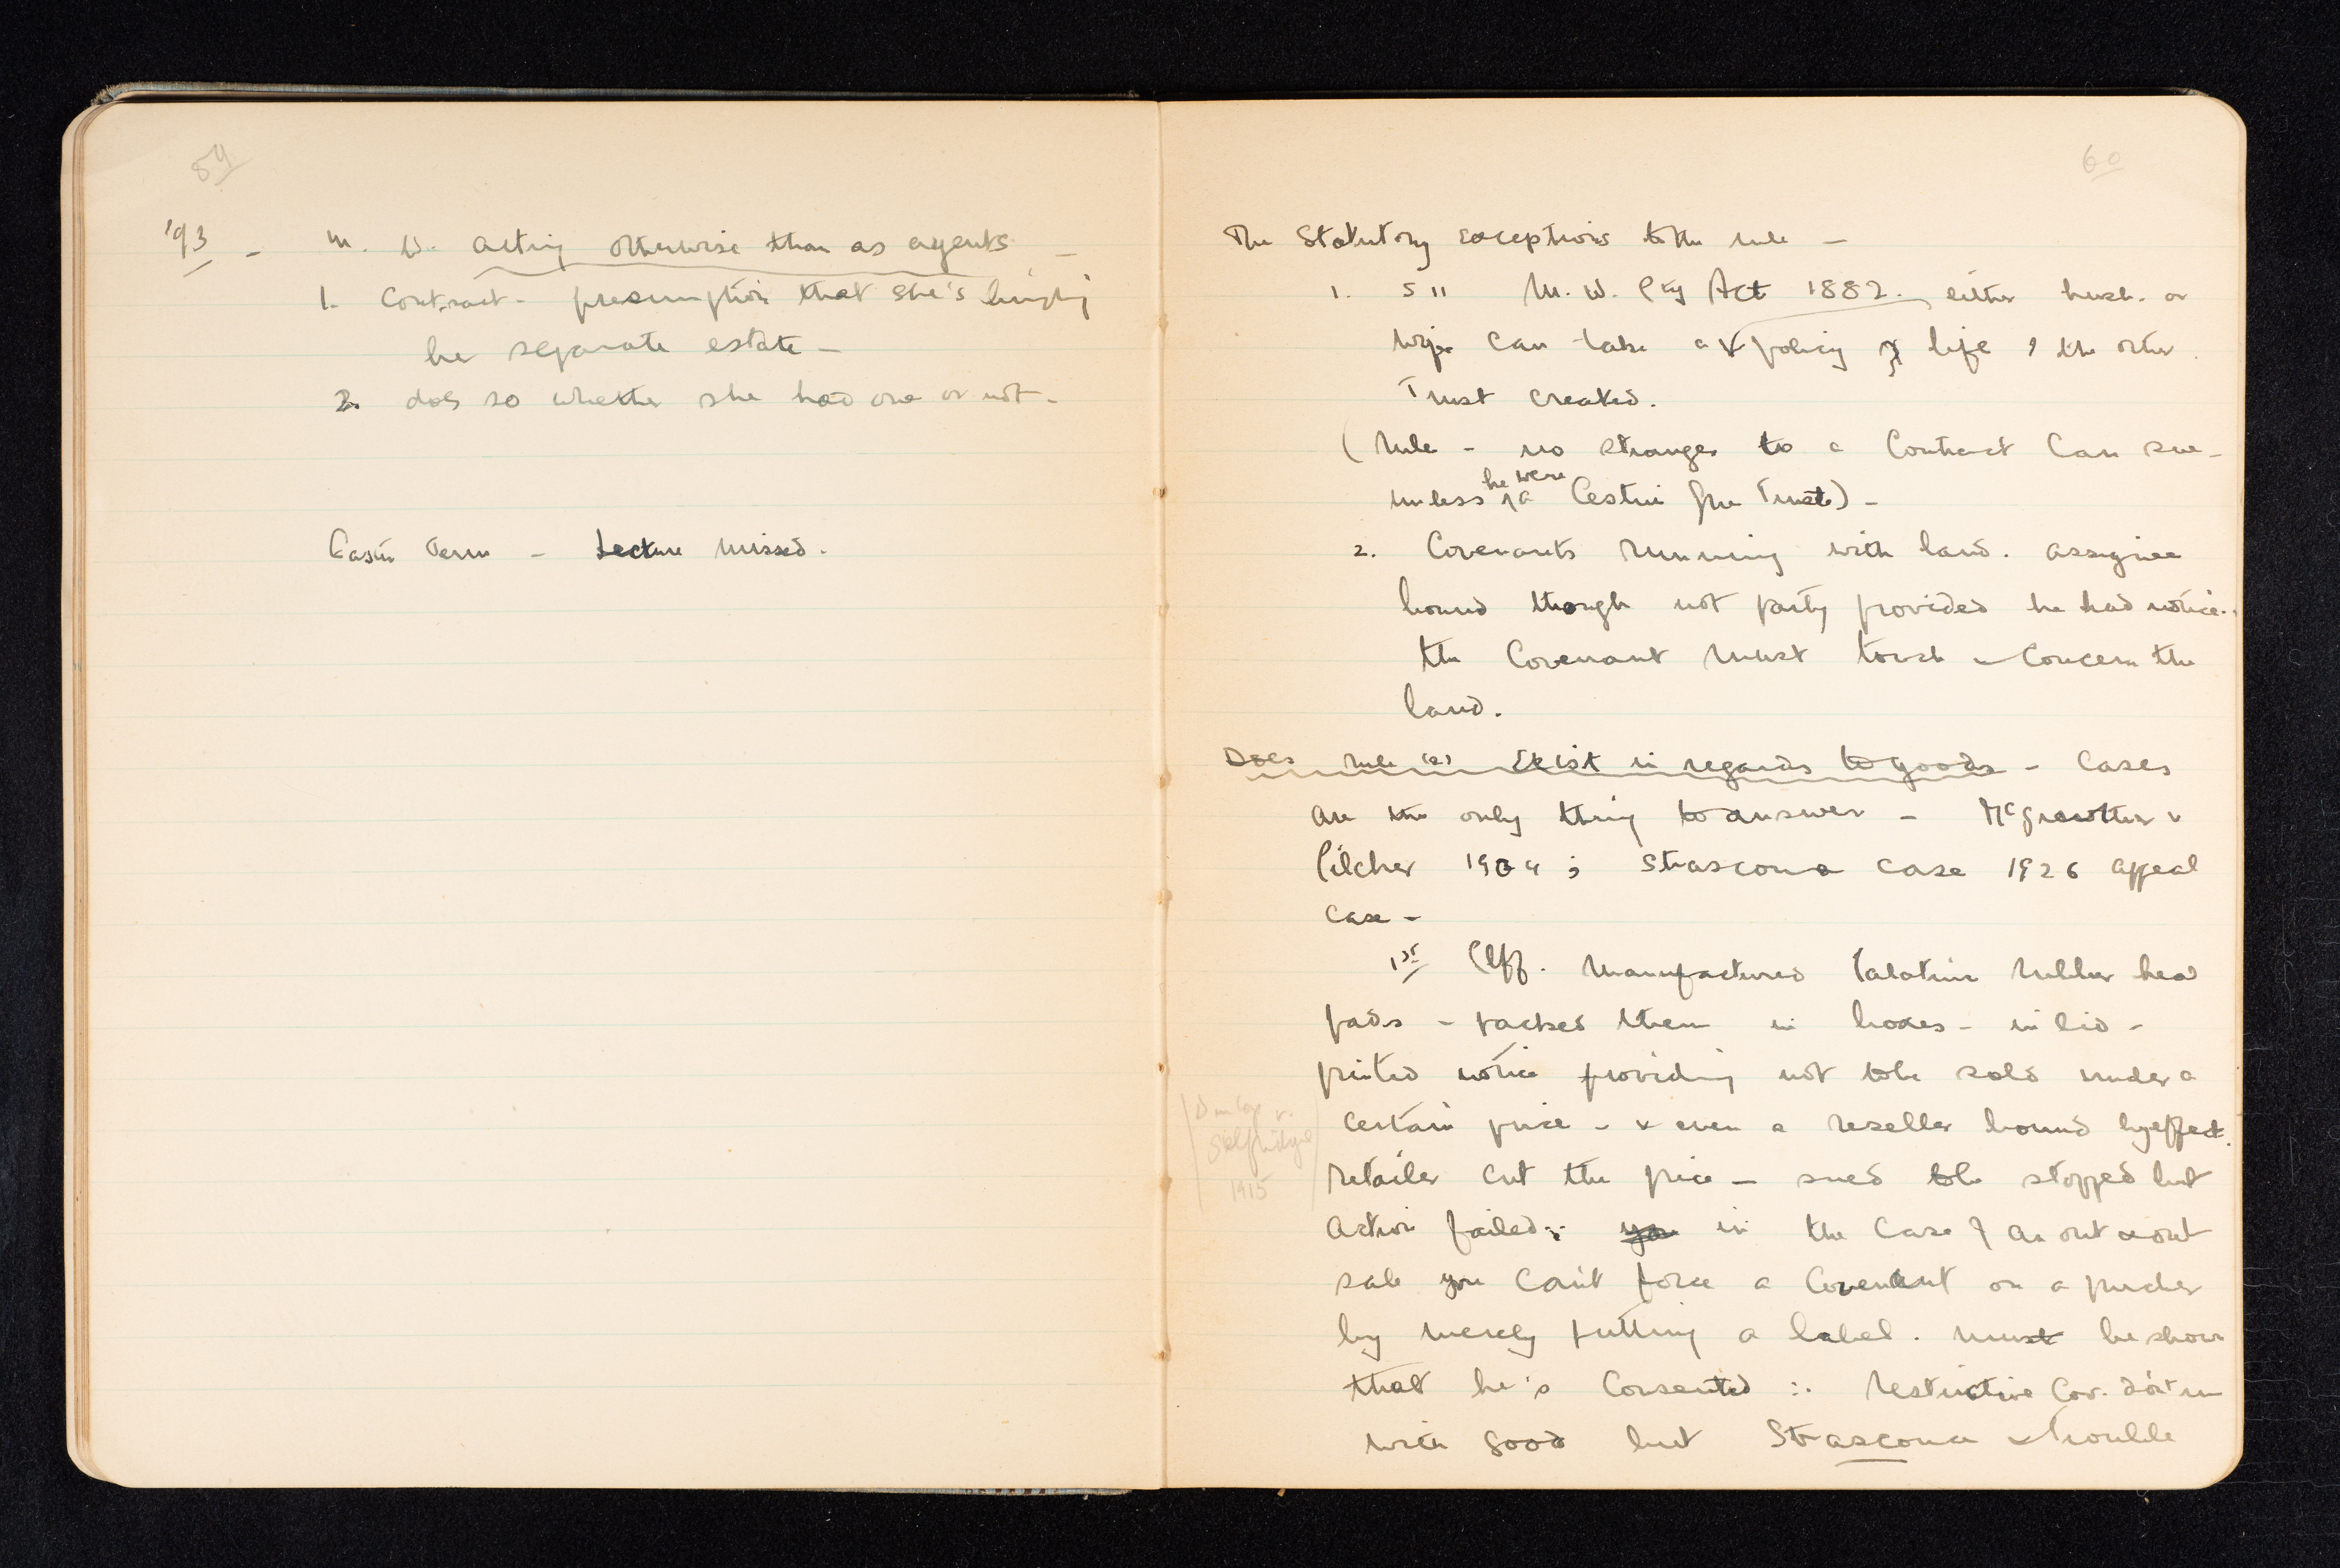 59
'93 - M. W. acting otherwise than as agents -
1. Contract - presumption that she's binding
her separate estate -
2. does so whether she had one or not -
Easter Term - Lecture missed.
60
The Statutory exceptions to the rule -
1. S 11 M. W. Pty Act 1882. either husb. or
wife can take a policy of life of the other.
Trust created.
(rule - no stranger to a Contract Can sue -
unless he were a Cestui Que Trust) -
2. Covenants running with land. assignee
bound though not party provided he had notice.
the Covenant must touch & Concern the
land.
Does rule (2) Exist in regards to goods - Cases
are the only thing to answer - McGruther v
Pilcher 1904; Strascona case 1926 appeal
Case -
1st Plff. manufactured rubber heal
pads - packed them in boxes - in lid -
printed notice providing not to be sold under a
certain price - & even a reseller bound by effect.
Dunlop v.
Selfridge
1915
retailer cut the price - sued to be stopped but
action failed ∵ you in the Case of an out & out
sale you can't force a Covenant on a purcher
by merely putting a label. must be shown
that he's Consented ∴ restrictive Cov. don't run
with good but Strascona & trouble